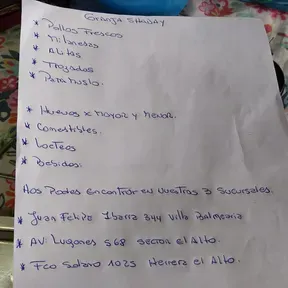 Granja SHADAY
* Pollos Frescos
* Milanesas
* Alitas
* Trozados
* Pata Muslo.
* Huevos x Mayor y Menor.
* Comestibles.
* Lacteos
* Bebidas.
Nos Podes Encontrar en Nuestras 3 Sucursales.
* Juan Felipe Ibarra 344 Villa Balnearia
* AV. Lugones 568 sector el Alto.
* Fco Solano 1025 Herrera el Alto.